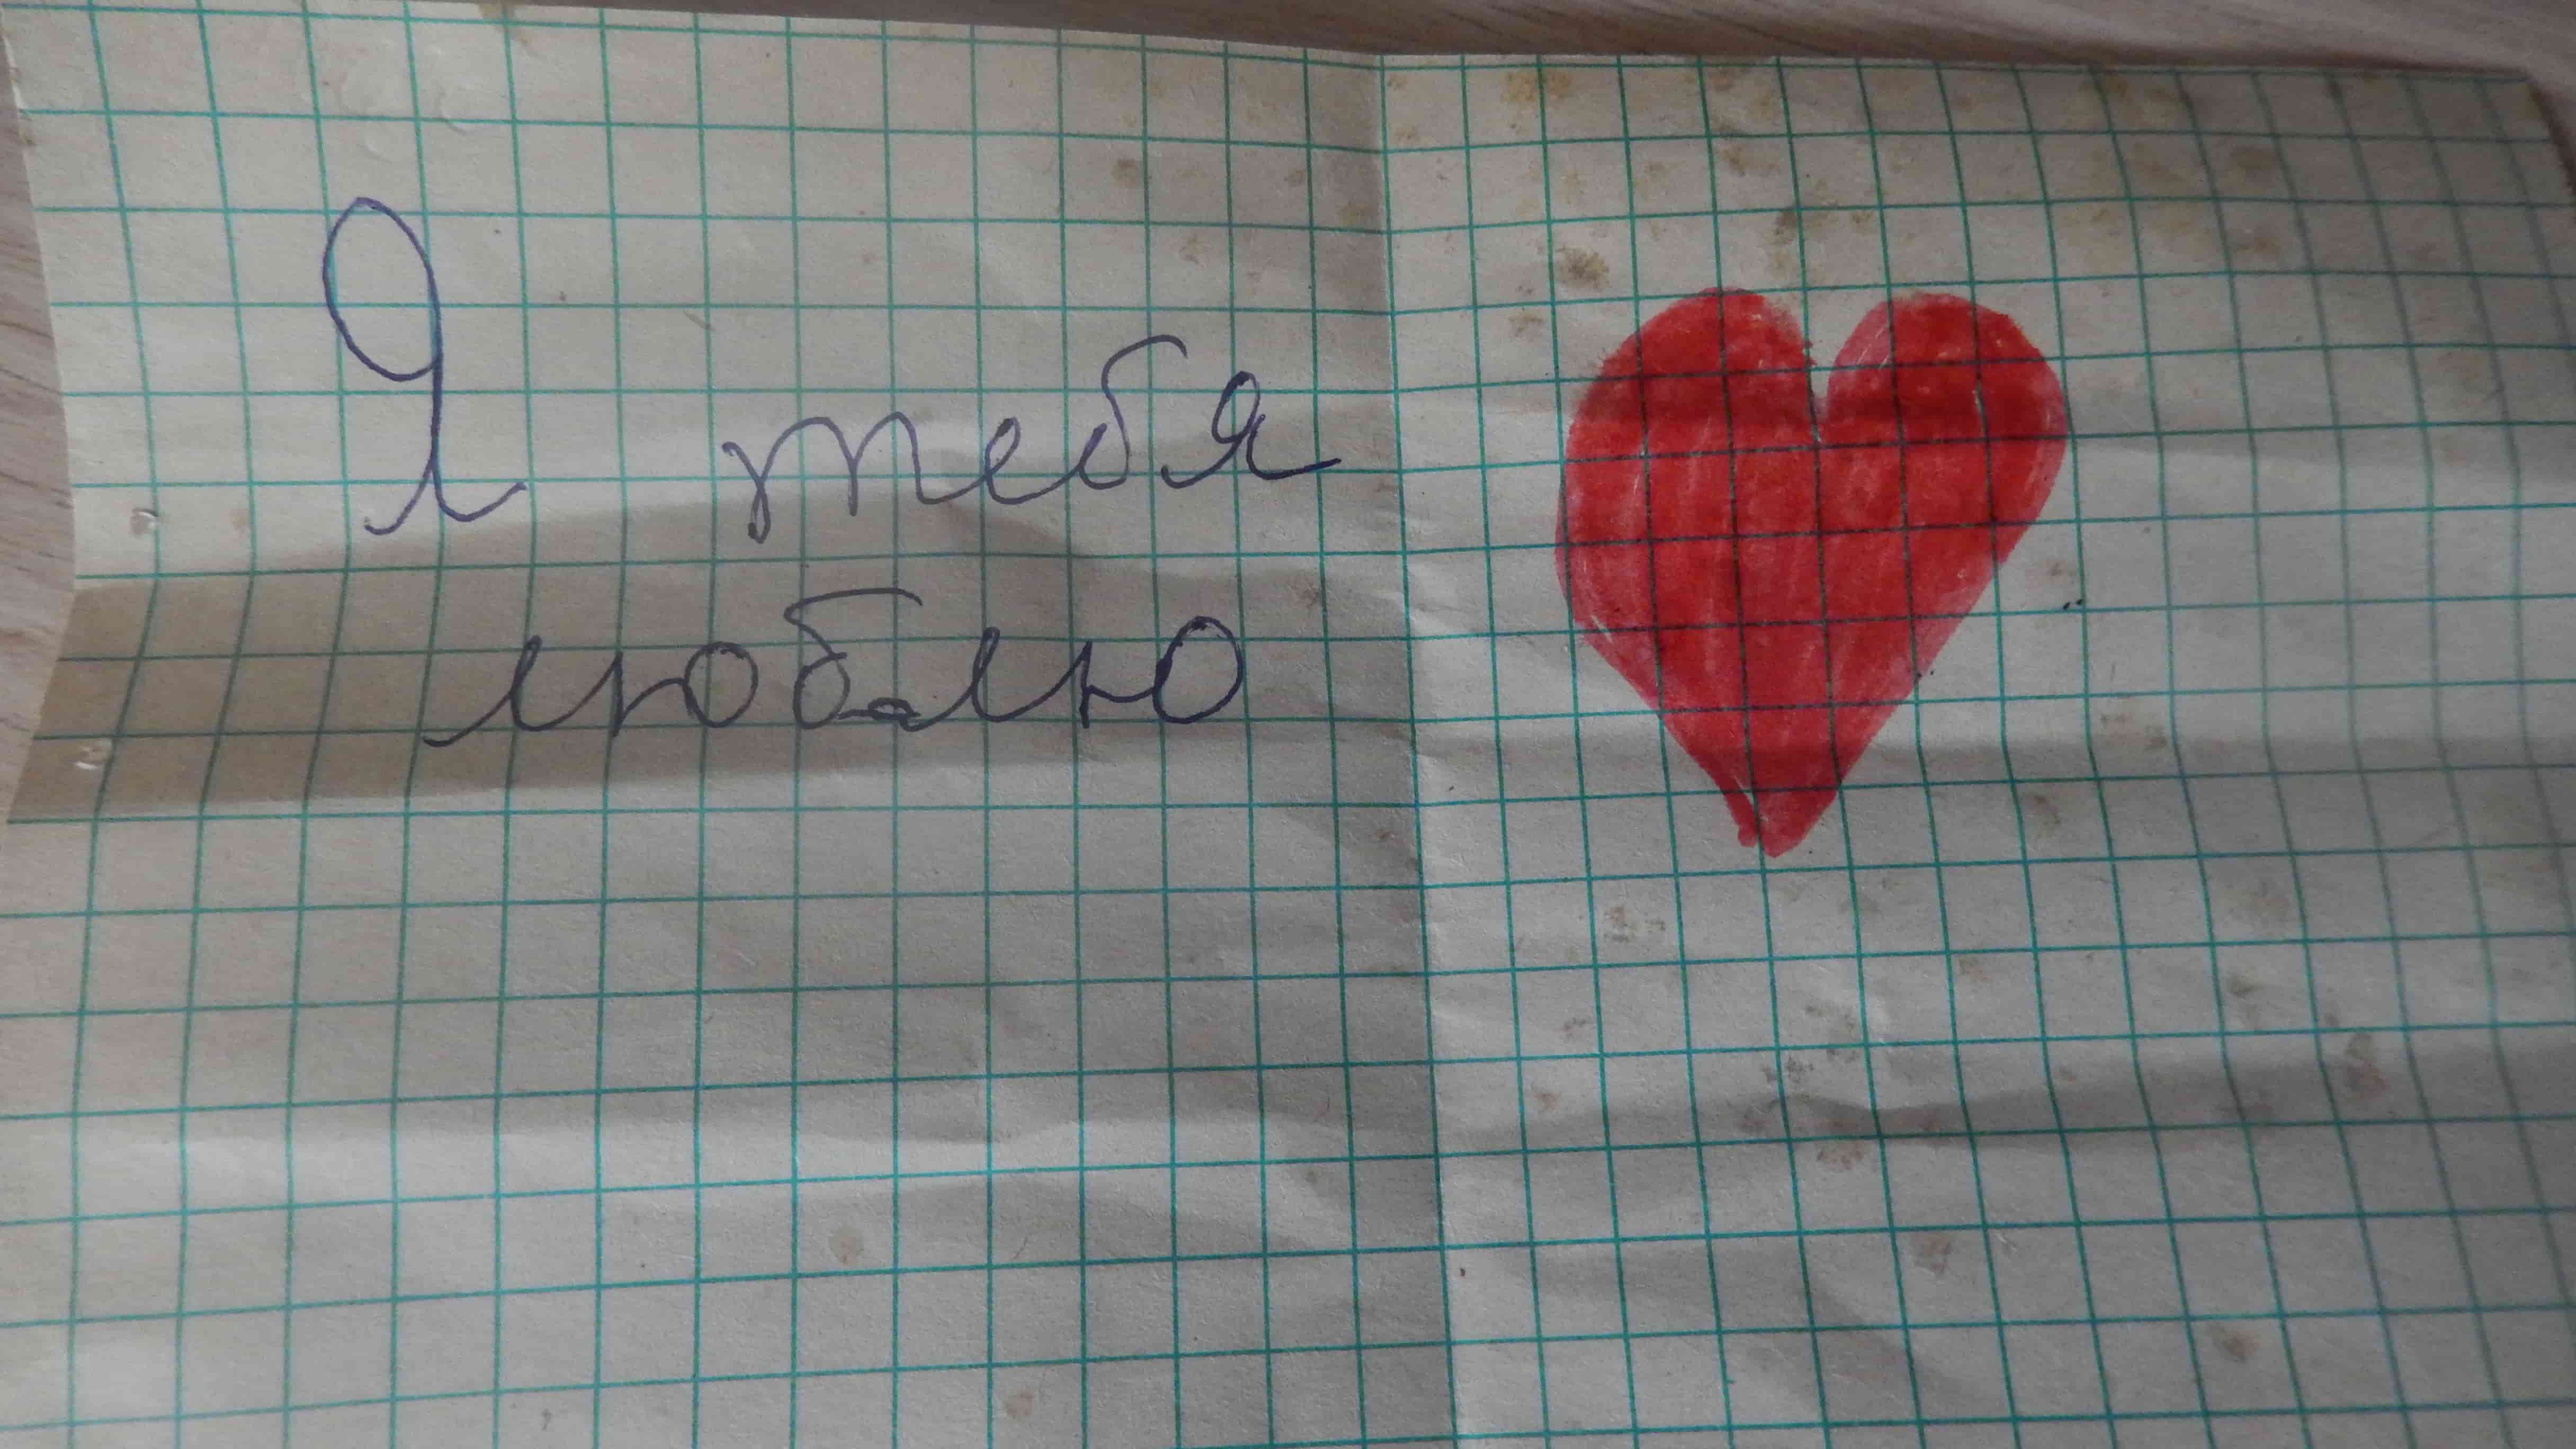 Я тебя
люблю